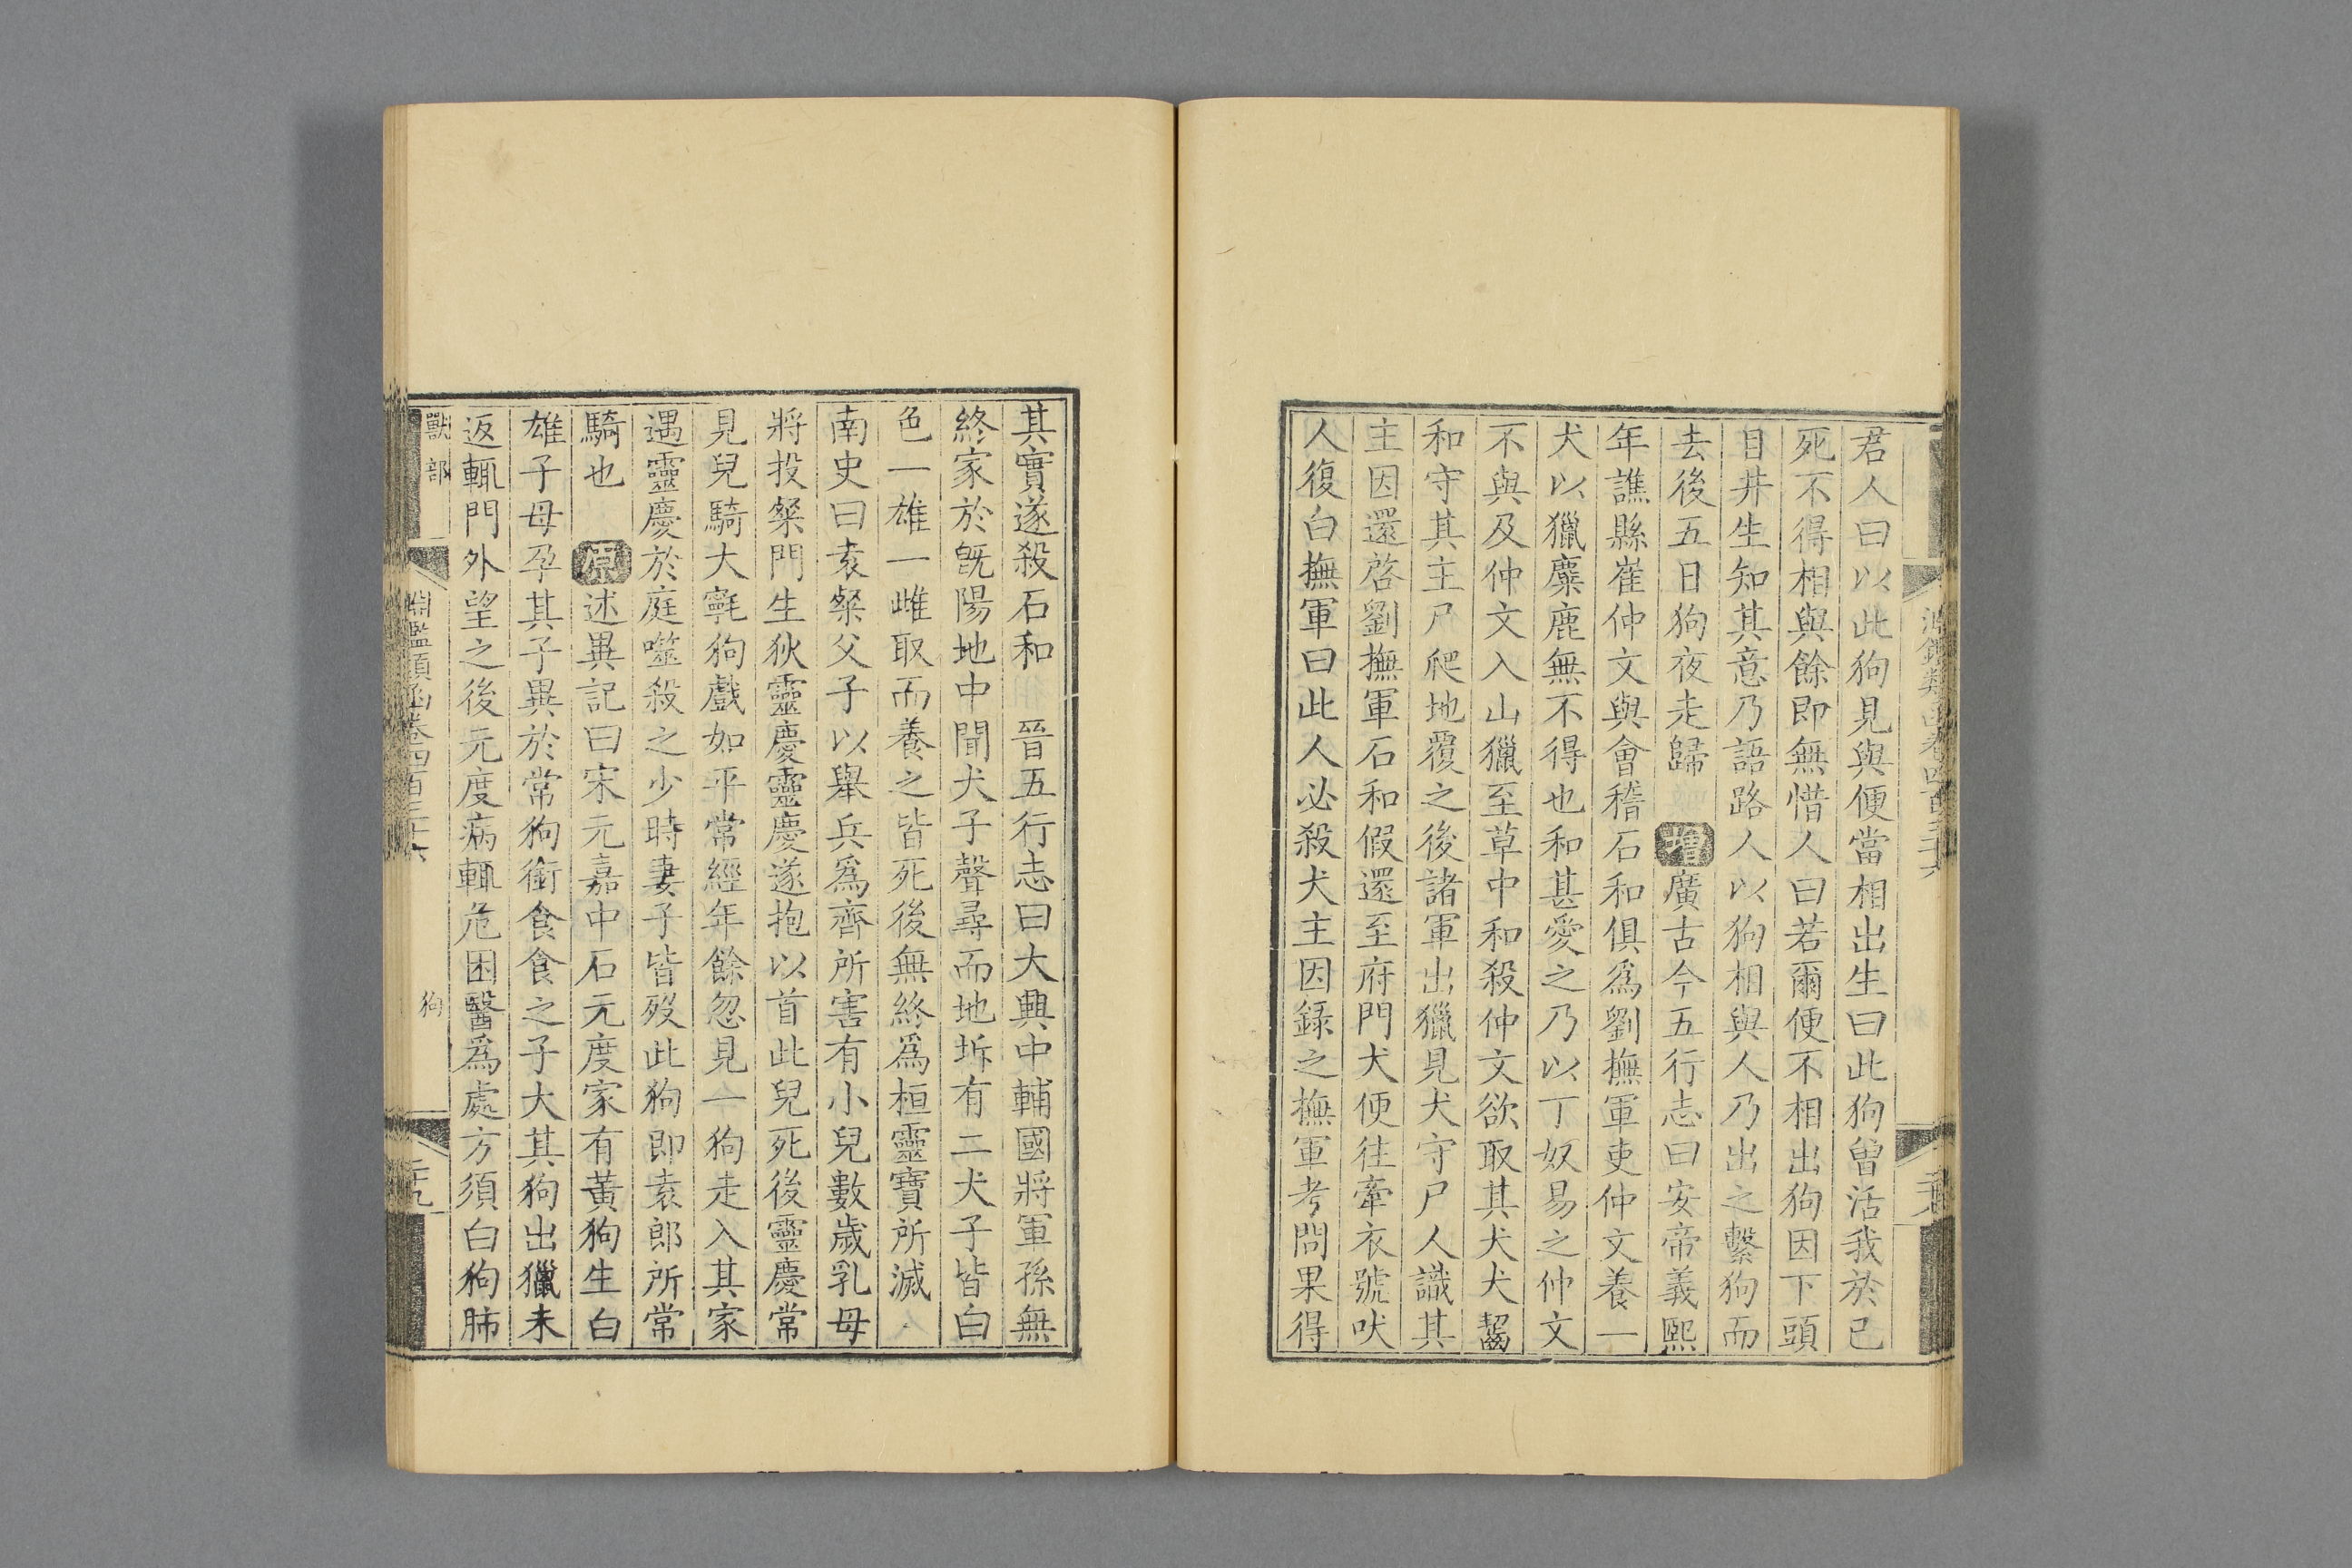 君人曰以此狗見與便當相出生曰此狗曾活我於已
死不得相與餘即無惜人曰若爾便不相出狗因下頭
目井生知其意乃語路人以狗相與人乃出之繫狗而
去後五日狗夜走歸 增廣古今五行志曰安帝義熙
年譙縣崔仲文與會稽石和俱為劉撫軍吏仲文養一
犬以獵麋鹿無不得也和甚愛之乃以丁奴易之仲文
不與及仲文入山獵至草中和殺仲文欲取其犬犬齧
和守其主尸爬地覆之後諸軍出獵見犬守尸人識其
主因還啓劉撫軍石和假還至府門犬便往牽衣號吠
人復白撫軍曰此人必殺犬主因錄之撫軍考問果得
其實遂殺石和 晉五行志曰大興中輔國將軍孫無
終家於旣陽地中聞犬子聲尋而地坼有二犬子皆白
色一雄一雌取而養之皆死後無終爲桓靈寶所滅
南史曰袁粲父子以舉兵爲齊所害有小兒數歲乳母
將投粲門生狄靈慶靈慶遂抱以首此兒死後靈慶常
見兒騎大㲰狗戲如平常經年餘忽見一狗走入其家
遇靈慶於庭噬殺之少時妻子皆歿此狗即袁郎所常
騎也 原述異記曰宋元嘉中石元度家有黃狗生白
雄子母孕其子異於常狗銜食食之子大其狗出獵未
返輒門外望之後元度病輒危困醫爲處方須白狗肺
獸部 淵鑑類函卷四百三十六 狗 二十九